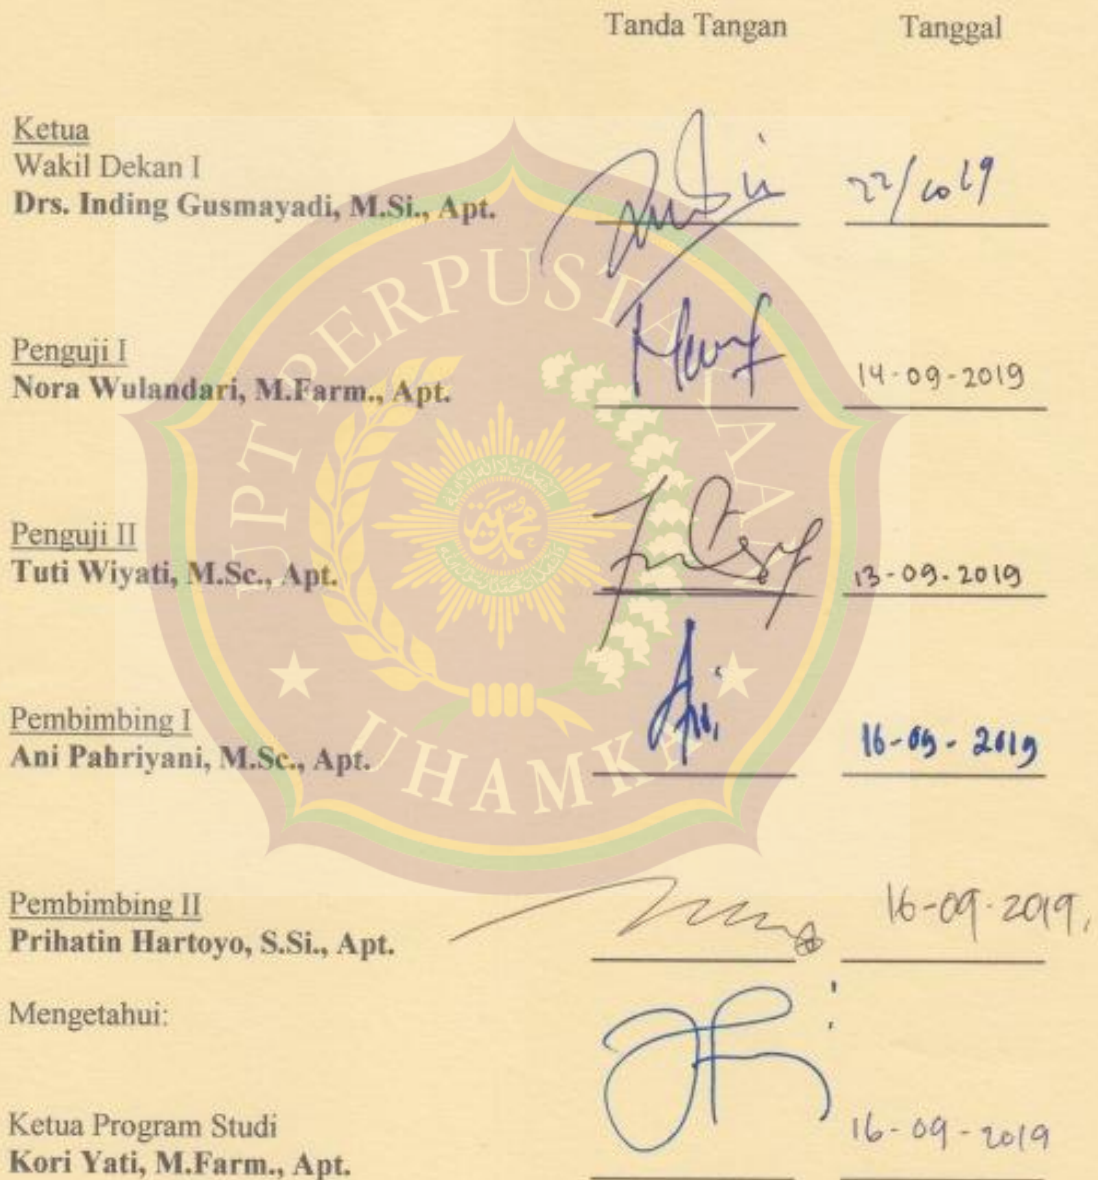 Tanda Tangan Tanggal
Ketua
Wakil Dekan I
Drs. Inding Gusmayadi, M.Si., Apt.
Penguji I
Nora Wulandari, M.Farm., Apt. 14-09-2019
Penguji II
Tuti Wiyati, M.Sc., Apt. 13-09-2019
Pembimbing I
Ani Pahriyani, M.Sc., Apt. 16-09-2019
Pembimbing II
Prihatin Hartoyo, S.Si., Apt. 16-09-2019.
Mengetahui:
Ketua Program Studi
Kori Yati, M.Farm., Apt. 16-09-2019
UPT PERPUSTAKAAN
UHAMKA